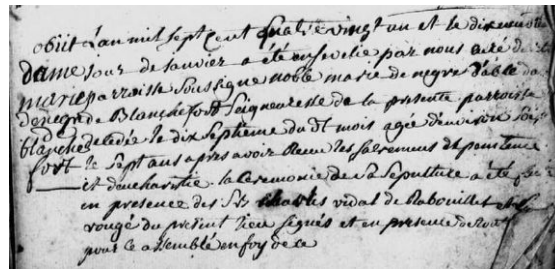 obiit L'an mil sept cent quatre vingt un et le dix neuf
dame jour de janvier a été ensevelie par nous curé de
marie parroisse soussigné noble marie de negre d'able da
denegre de Blanchefort seigneuresse de la presente parroisse
blanche decedée le dix septieme du dt mois agée denviron soi
fort le sept ans apres avoir Reçu les sacremens de penitence
et deucharistie. la ceremonie de sa sepulture a été
en presence des Srs charles vidal de Rabouillet et
rougé du présent lieu signés et en presence de
pour ce assemblé en foy de ce